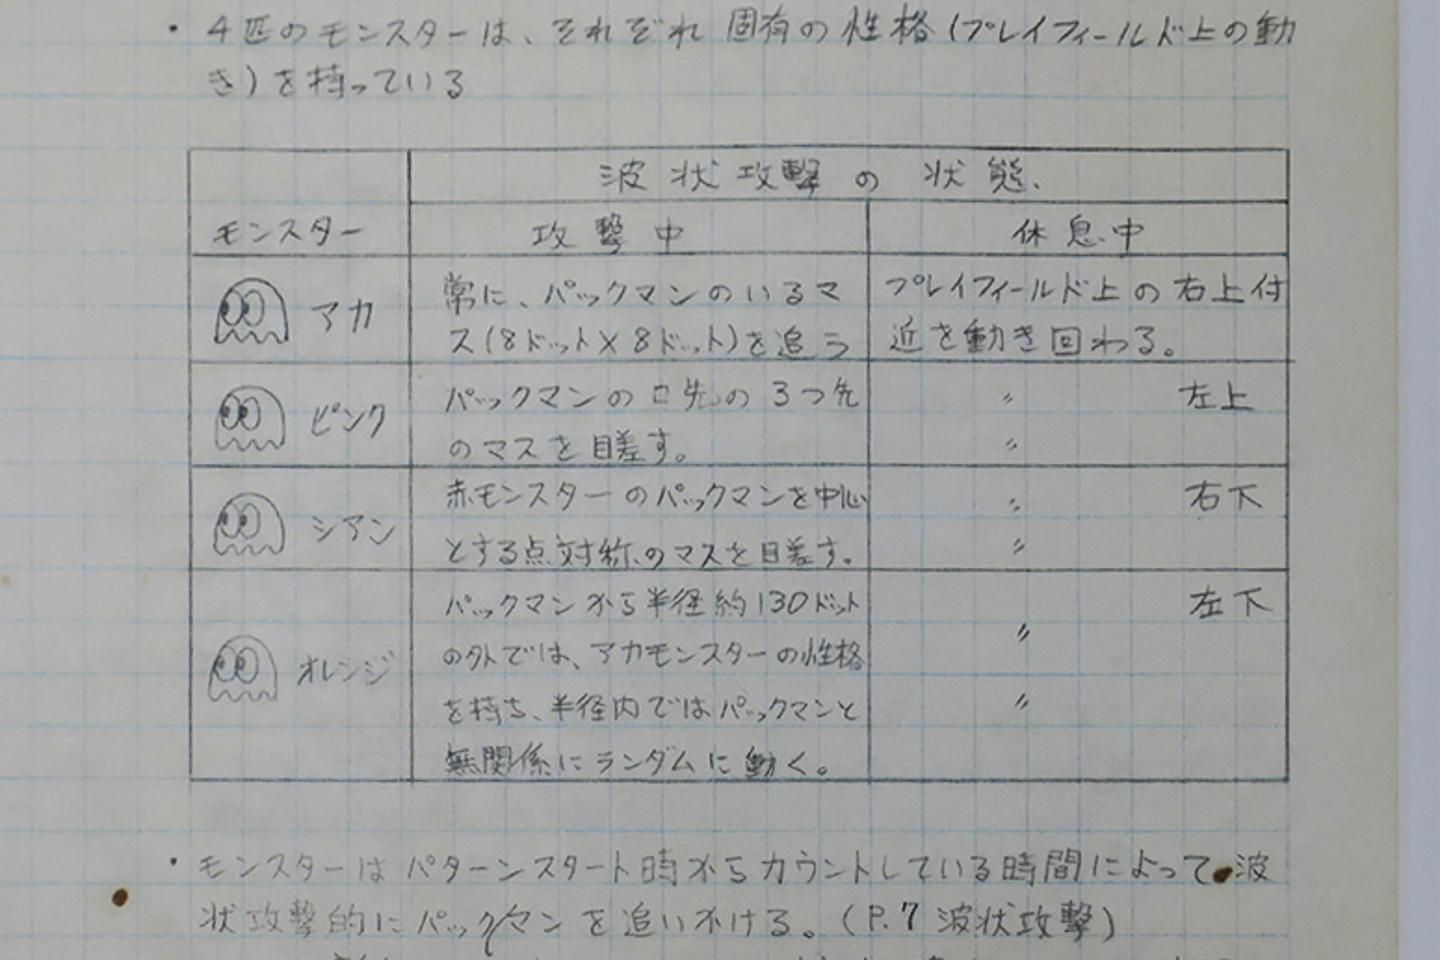 ・4匹のモンスターは、それぞれ固有の性格(プレイフィールド上の動
き)を持っている
波状攻撃の状態
モンスター
攻撃中
休息中
アカ
常に、パックマンのいるマ
ス(8ドット×8ドット)を追う
プレイフィールド上の右上付
近を動き回わる。
ピンク
パックマンの口先の3つ先
のマスを目差す。
〃 左上
〃
シアン
赤モンスターのパックマンを中心
とする点対称のマスを目差す。
〃 右下
〃
オレンジ
パックマンから半径約130ドット
の外では、アカモンスターの性格
を持ち、半径内ではパックマンと
無関係にランダムに動く。
〃 左下
〃
・モンスターはパターンスタート時からカウントしている時間によって波
状攻撃的にパックマンを追いかける。(P.7 波状攻撃)